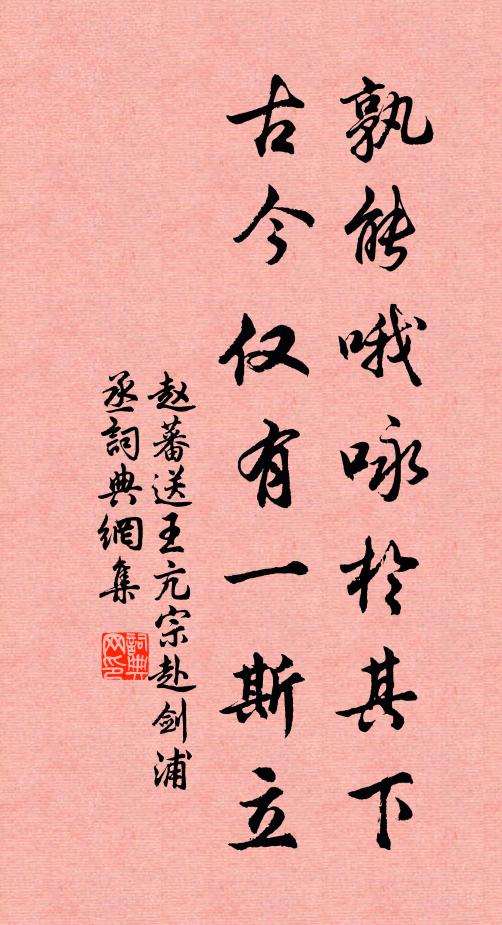 孰能哦咏於其下
古今仅有一斯立
赵蕃送王亢宗赴剑浦
丞詞典網集
詞典
网印